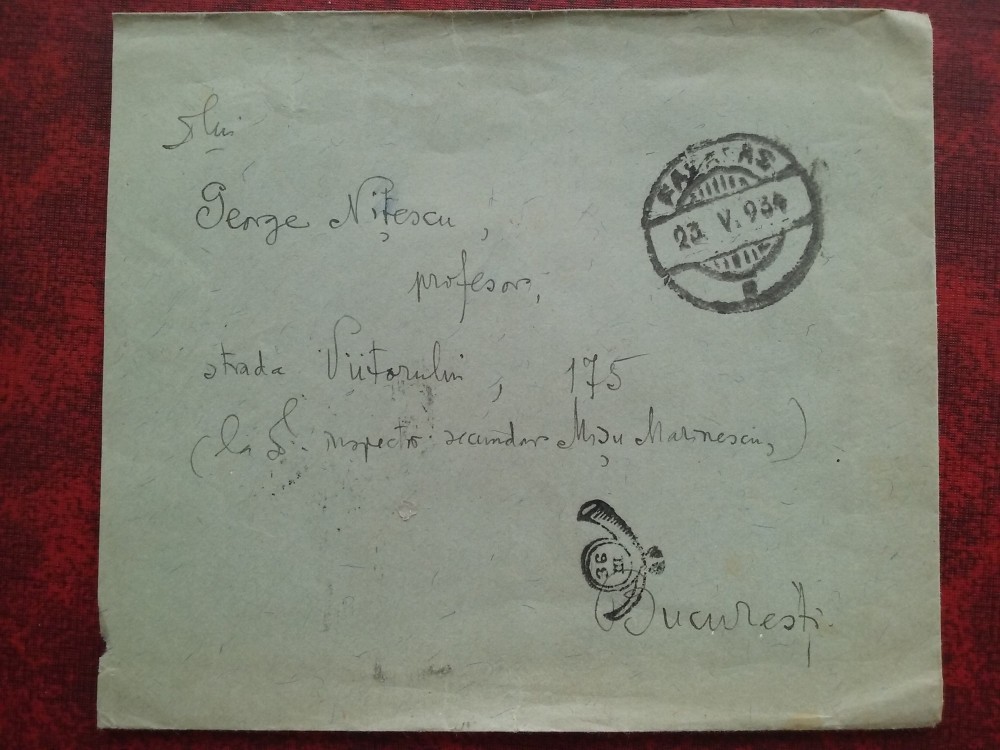 Dlui
George Nițescu,
profesor,
strada Viitorului, 175
(la D. inspector secundar Mișu Marinescu,)
București.
FĂGĂRAȘ
23. V. 934
36
III